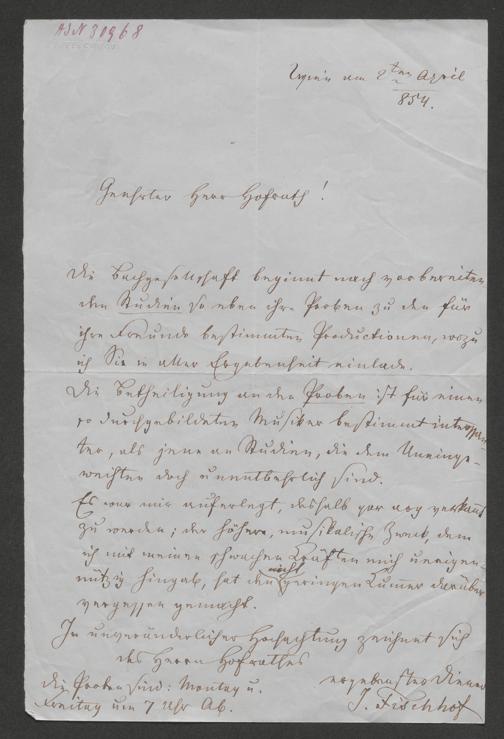 ASN 30968
Wien am 2ten April
854.
Geehrter Herr Hofrath!
Die Bachgesellschaft beginnt nach vorbereiten
den Studien so eben ihre Proben zu den für
ihre Freunde bestimmten Productionen, wozu
ich Sie in aller Ergebenheit einlade.
Die Betheiligung an den Proben ist für einen
so durchgebildeten Musiker bestimmt interessan
ter, als jene an Studien, die dem Uneinge-
weihten doch unentbehrlich sind.
Es war mir auferlegt, deshalb gar arg verkannt
zu werden; der höhere, musikalische Zweck, dem
ich mit meinen schwachen Kräften mich uneigen-
nützig hingab, hat den nicht geringen Kummer darüber
vergessen gemacht.
In unveränderlicher Hochachtung zeichnet sich
des Herrn Hofrathes
ergebenster Diener
J. Fischhof
die Proben sind: Montag u.
Freitag um 7 Uhr Ab.